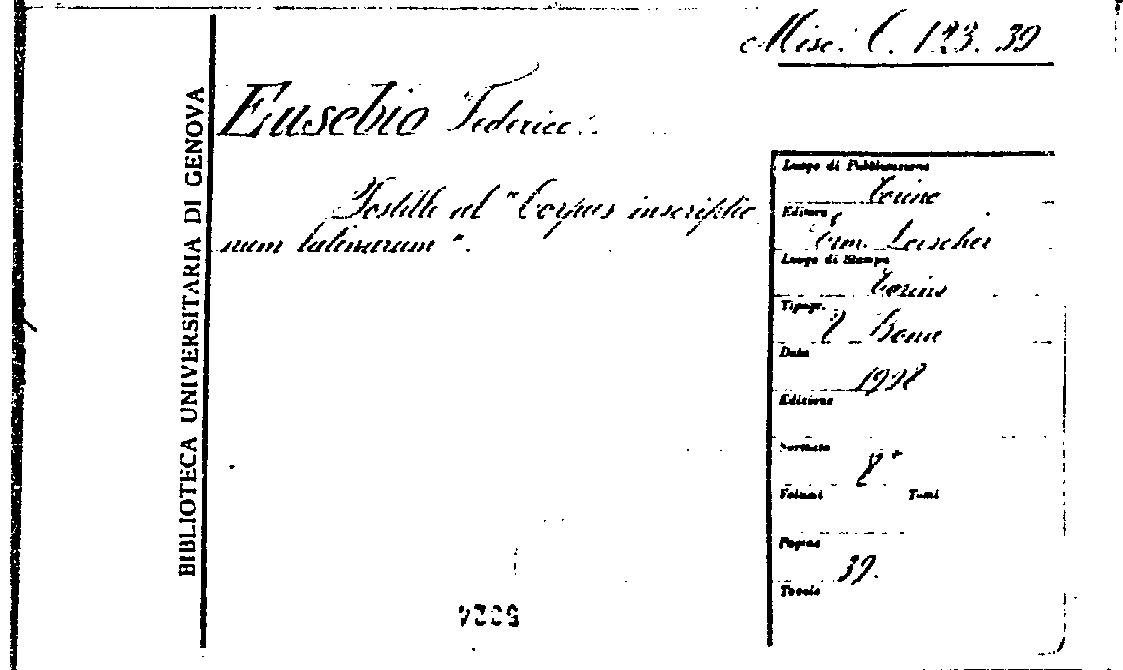 Misc. C. 123. 39
BIBLIOTECA UNIVERSITARIA DI GENOVA
Eusebio Federico.
Postille al "Corpus inscriptio
num latinarum".
Luogo di Pubblicazione
Torino
Editore
Erm. Loescher
Luogo di Stampa
Torino
Tipogr.
V. Bona
Data
Edizione
Formato
8°
Volumi Tomi
Pagine
39.
Tavole